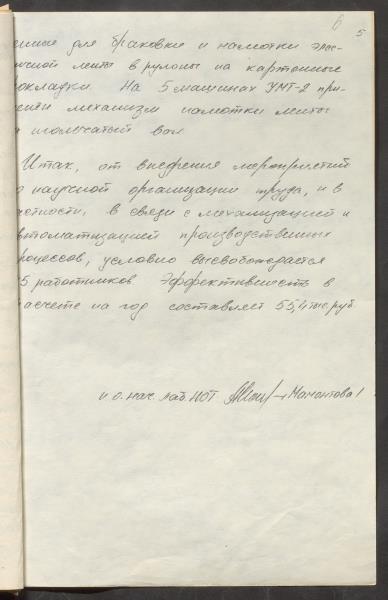 6
5
енные для браковки и намотки элас-
ичной ленты в рулоны на картонные
рокладки. На 5 машинах УМТ-2 при-
механизм намотки ленты
игольчатый вал
Итак, от внедрения мероприятий
о научной организации труда, и в
астности, в связи с механизацией и
втоматизацией производственных
роцессов, условно высвобождается
5 работников Эффективность в
асчете на год составляет 55,4 тыс. руб
и о. нач. лаб. НОТ Мамонтова/